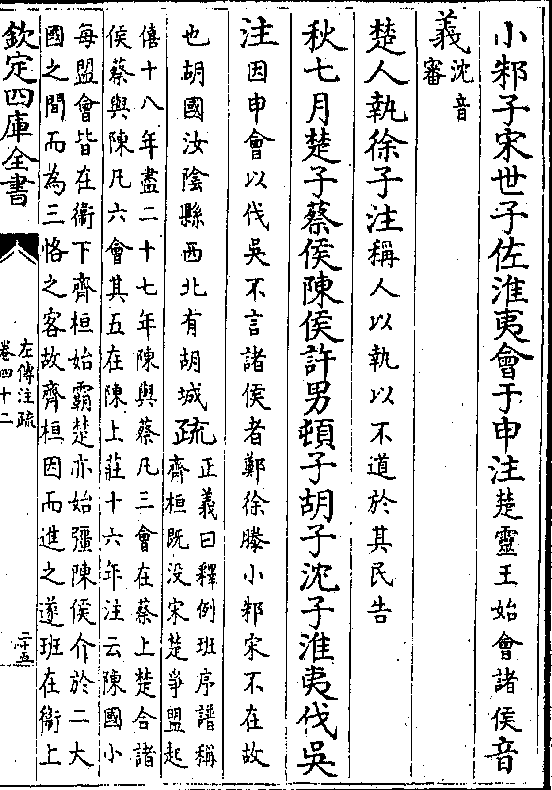 小邾子宋世子佐淮夷會于申注楚靈王始會諸侯音
義沈音
審
楚人執徐子注稱人以執以不道於其民告
秋七月楚子蔡侯陳侯許男頓子胡子沈子淮夷伐吳
注因申會以伐吳不言諸侯者鄭徐滕小邾宋不在故
也胡國汝陰縣西北有胡城疏正義曰釋例班序譜稱
齊桓既没宋楚爭盟起
僖十八年盡二十七年陳與蔡凡三會在蔡上楚合諸
侯蔡與陳凡六會其五在陳上莊十六年注云陳國小
每盟會皆在衞下齊桓始霸楚亦始彊陳侯介於二大
國之間而為三恪之客故齊桓因而進之遂班在衞上
欽定四庫全書
左傳注疏
卷四十二
二十五